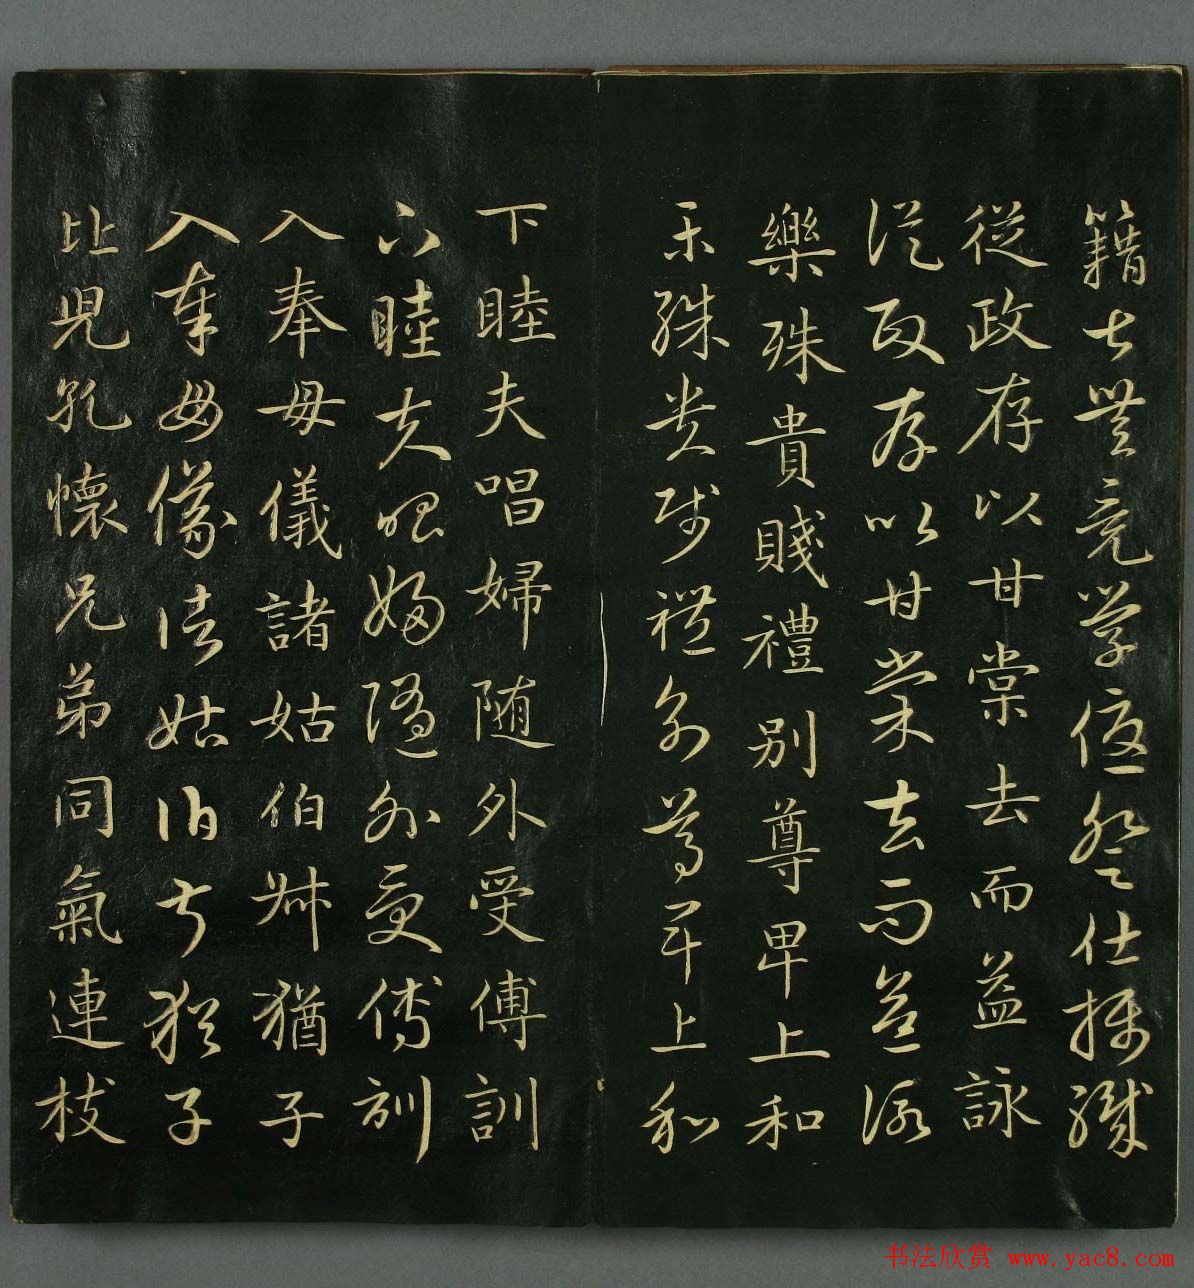 籍甚無竟學優登仕攝職
從政存以甘棠去而益詠
從政存以甘棠去而益詠
樂殊貴賤禮別尊卑上和
樂殊貴賤禮別尊卑上和
下睦夫唱婦随外受傅訓
下睦夫唱婦随外受傅訓
入奉母儀諸姑伯叔猶子
入奉母儀諸姑伯叔猶子
比兒孔懷兄弟同氣連枝
书法欣赏 www.yac8.com